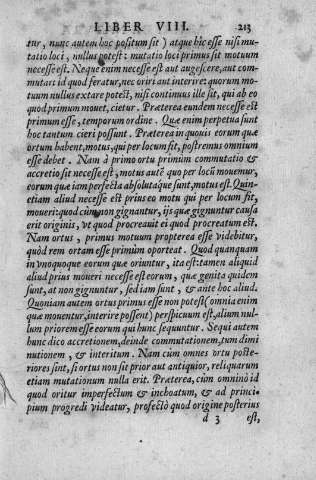 LIBER VIII. 213
tur, nunc autem hoc positum sit) atque hic esse nisi mu-
tatio loci, nullus potest: mutatio loci primus sit motuum
necesse est. Neque enim necesse est aut augescere, aut com
mutari id quod feratur, nec oriri aut interire: quorum mo-
tuum nullus extare potest, nisi continuus ille sit, qui ab eo
quod primum mouet, cietur. Præterea eundem necesse est
primum esse, temporum ordine. Quæ enim perpetua sunt
hoc tantum cieri possunt. Præterea in quouis eorum quæ
ortum habent, motus, qui per locum fit, postremus omnium
esse debet. Nam à primo ortu primùm commutatio &
accretio sit necesse est, motus autē quo per locū mouemur,
eorum quæ iam perfecta absolutaque sunt, motus est. Quin-
etiam aliud necesse est prius eo motu qui per locum fit,
mouerit: quod cùm non gignantur, ijs quæ gignuntur causa
erit originis, vt quod procreauit ei quod procreatum est.
Nam ortus, primus motuum propterea esse videbitur,
quòd rem ortam esse primùm oporteat. Quod quanquam
in vnoquoque eorum quæ oriuntur, ita est: tamen aliquid
aliud prius moueri necesse est eorum, quæ genita quidem
sunt, at non gignuntur, sed iam sunt, & ante hoc aliud.
Quoniam autem ortus primus esse non potest (omnia enim
quæ mouentur, interire possent) perspicuum est, alium nul-
lum priorem esse eorum qui hunc sequuntur. Sequi autem
hunc dico accretionem, deinde commutationem, tum dimi
nutionem, & interitum. Nam cùm omnes ortu poste-
riores sint, si ortus non sit prior aut antiquior, reliquarum
etiam mutationum nulla erit. Præterea, cùm omnino id
quod oritur imperfectum & inchoatum, & ad princi-
pium progredi videatur, profectò quod origine posterius
d 3 est,